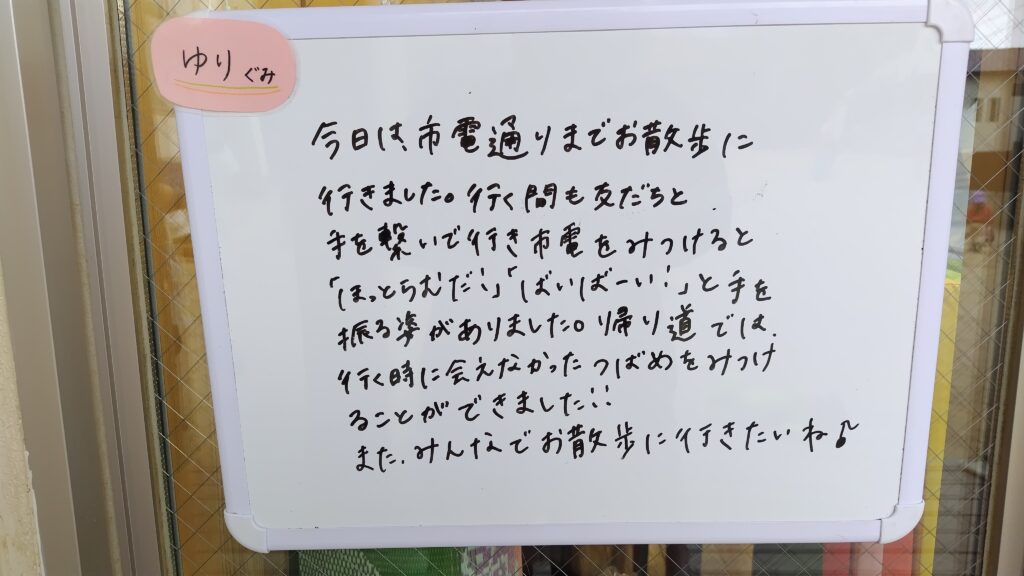 ゆり ぐみ
今日は、市電通りまでお散歩に
行きました。行く間も友だちと
手を繋いで行き市電をみつけると
「ほっとらむだ!」「ばいばーい!」と手を
振る姿がありました。帰り道では、
行く時に会えなかったつばめをみつけ
ることができました!!
また、みんなでお散歩に行きたいね♪